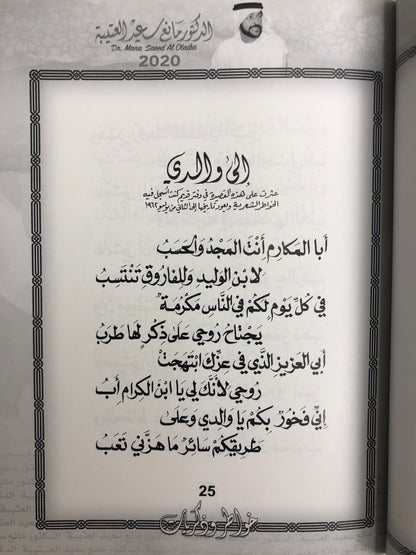 الدكتور مانع سعيد العتيبة
Dr. Mana Saeed Al Otaiba
2020
إلى والدي
عثرت على هذه القصيدة في دفتر قديم كنت أسجل فيه
الخواطر الشعرية ويعود تاريخها إلى الثاني من يوليو ١٩٦٢
أبا المكارم أنْتَ المَجْدُ وَالحَسَبُ
لابنِ الوليدِ وَللفاروقِ تَنْتَسِبُ
في كُلِّ يَوْمٍ لَكُمْ في النَّاسِ مَكْرُمَةٌ
يَجْتاحُ رُوحي عَلى ذِكْرٍ لَها طَرَبُ
أبي العَزيز الَّذي في عِزِّكَ ابْتَهَجَتْ
رُوحي لأنَّكَ لي يا ابْنَ الكِرامِ أبُ
إنِّي فَخُورٌ بِكُمْ يا وَالِدي وَعَلى
طَريقِكُمْ سائِرٌ ما هَزَّني تَعَبُ
25
خواطر وذكريات